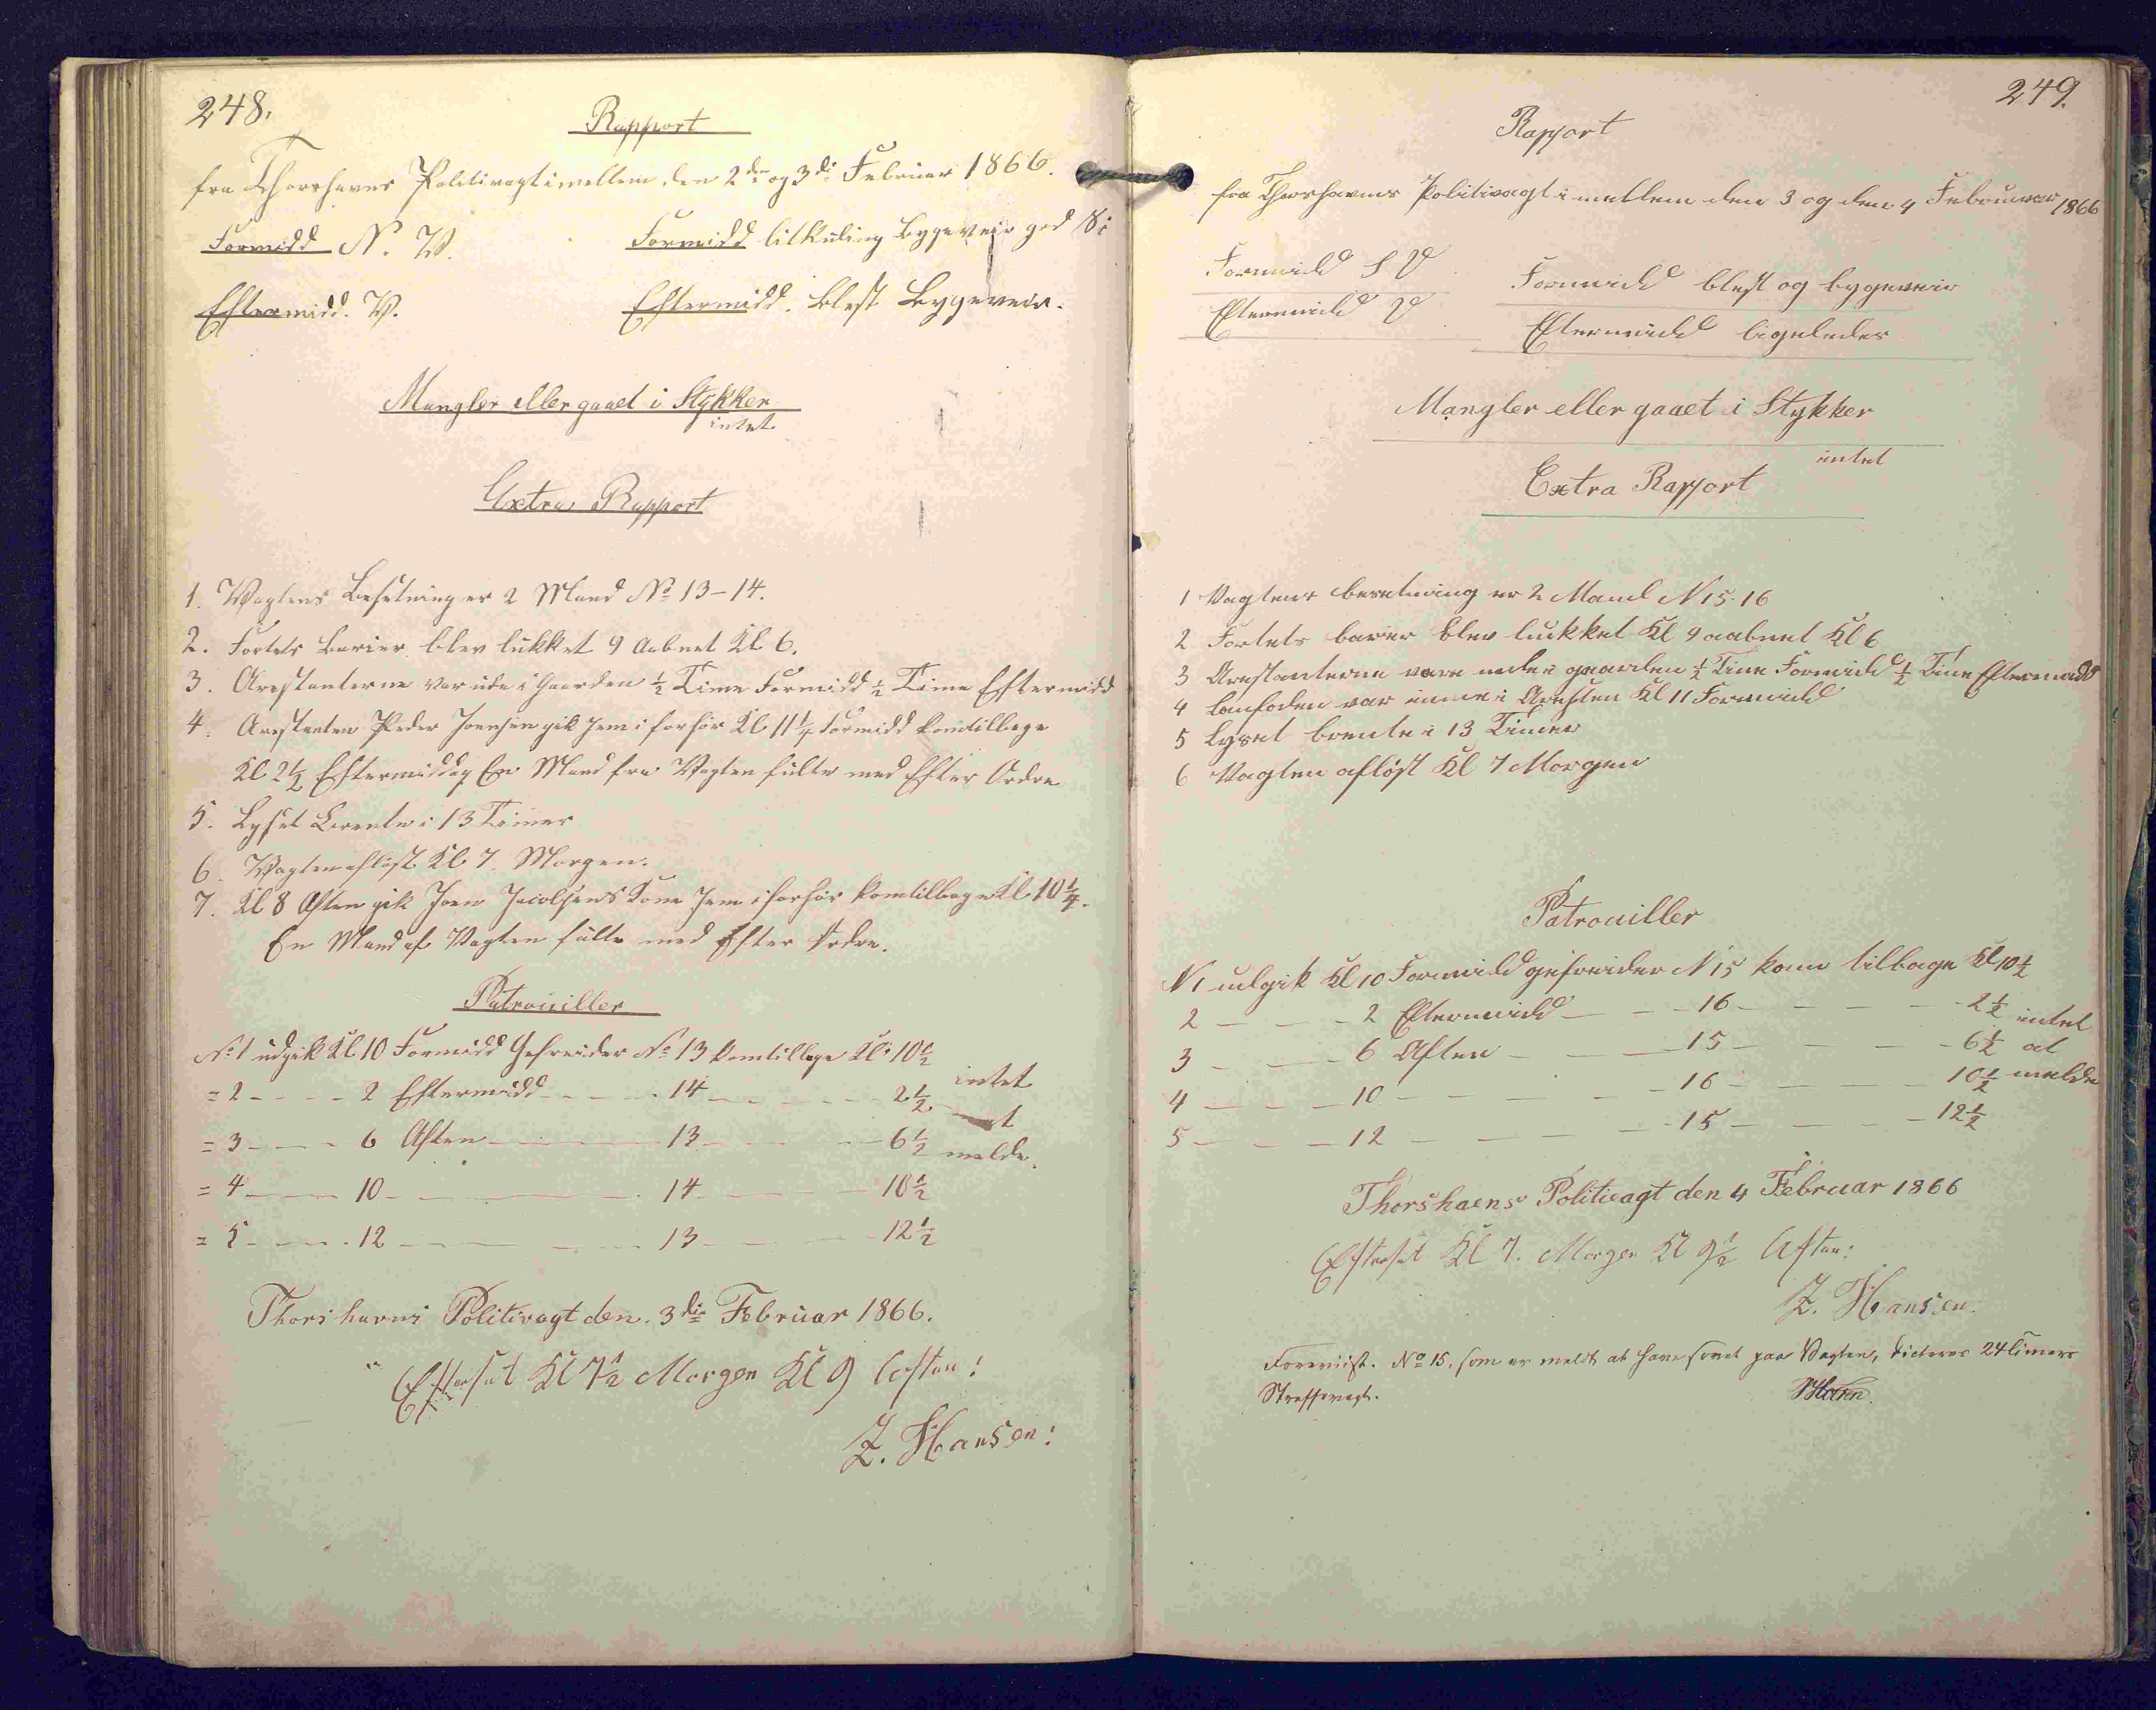 248.
Rapport
fra Thorshavns Politivagt imellem den 2den og 3di Februar 1866.
Formidd N. V. Formidd litkuling Bygeveir god Si
Eftermidd. V. Eftermidd. blest Bygeveir.
Mangler eller gaaet i Stykker
intet
Extra Rapport
1. Vagtens Besetning er 2 Mand No 13-14.
2. Fortets Barier blev lukket 9 Aabnet Kl 6.
3. Arestanterne var ude i Gaarden 1/2 Time Formidd 1/2 Time Eftermidd
4. Arestanten Peder Joensen gik hem i forhør Kl 11 1/4 Formidd kom tilbage
Kl 2 1/2 Eftermiddag En Mand fra Vagten fulte med Efter Ordre
5. Lyset brente i 13 Timer
6. Vagten afløst Kl 7. Morgen.
7. Kl 8 Aften gik Joen Jacobsens Kone hem i forhør kom tilbage Kl 10 1/4.
En Mand af Vagten fulte med Efter Ordre.
Patrouiller
No 1 udgik Kl 10 Formidd Gefreider No 13 kom tilbage Kl. 10 1/2
= 2 - - - - 2 Eftermidd - - - - 14 - - - - 2 1/2 intet
= 3 - - - - 6 Aften - - - - 13 - - - - 6 1/2 at
melde.
= 4 - - - - 10 - - - - 14 - - - - 10 1/2
= 5 - - - - 12 - - - - 13 - - - - 12 1/2
Thorshavns Politivagt den. 3die Februar 1866.
Efterset Kl 7 1/2 Morgen Kl 9 Aften!
Z. Hansen!
249.
Rapport
fra Thorshavns Politivagt imellem den 3 og den 4 Februuar 1866
Formidd S V Formidd blest og bygeveir
Eftermidd V Eftermidd ligeledes
Mangler eller gaaet i Stykker
intet
Extra Rapport
1 Vagtens besetning er 2 Mand N 15-16
2 Fortets barier blev lukket Kl 9 aabnet Kl 6
3 Arestanterne vare ude i gaarden 1/2 Time Formidd 1/2 Time Eftermidd
4 Lanfoden var inne i Aresten Kl 11 Formidd
5 Lyset brente i 13 Timer
6 Vagten afløst Kl 7 Morgen
Patrouiller
N 1 udgik Kl 10 Formidd gefreider N 15 kom tilbage Kl 10 1/2
2 - - - 2 Eftermidd - - - 16 - - - 2 1/2 intet
3 - - - 6 Aften - - - 15 - - - 6 1/2 at
4 - - - 10 - - - 16 - - - 10 1/2 melde
5 - - - 12 - - - 15 - - - 12 1/2
Thorshaens Politivagt den 4 Februar 1866
Efterset Kl 7. Morgen Kl 9 1/2 Aften:
Z. Hansen.
Foreviist. No 15, som er meldt at have sovet paa Vagten, dicteres 24 Timers
Straffevagt.